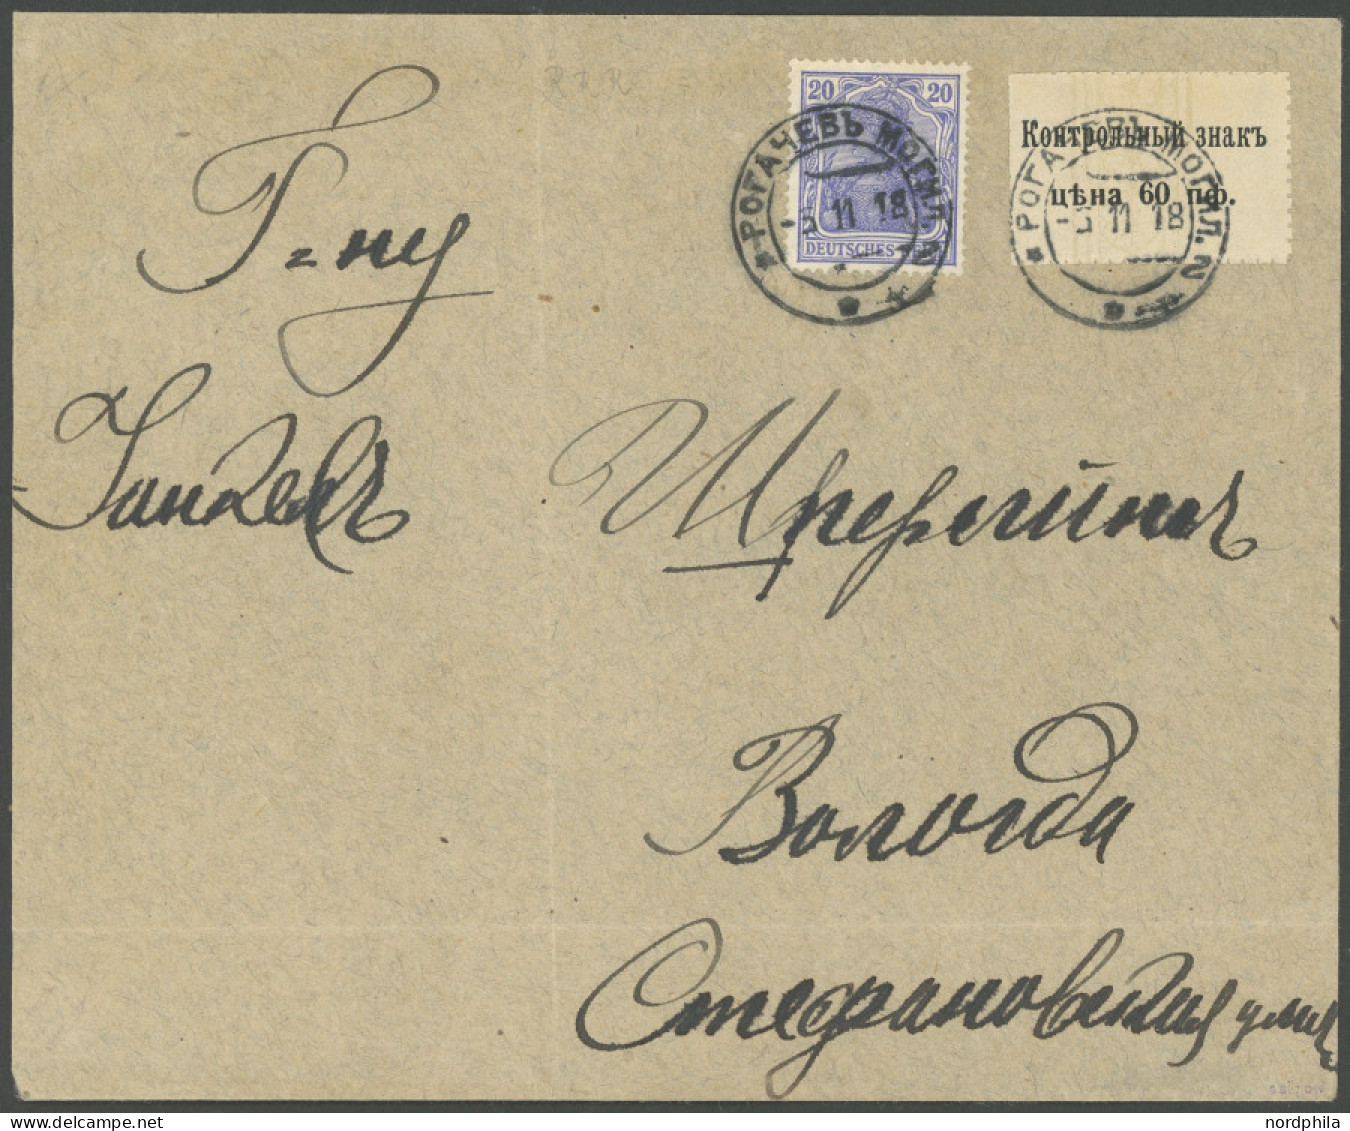 20 20
DEUTSCHES
РОГАЧЕВЪ МОГИЛ. 2
-5 11 18
Контрольный знакъ
цѣна 60 пф.
РОГАЧЕВЪ МОГИЛ. 2
-5 11 18
Г=ну
Вологда
Стефановская улица
nordphila